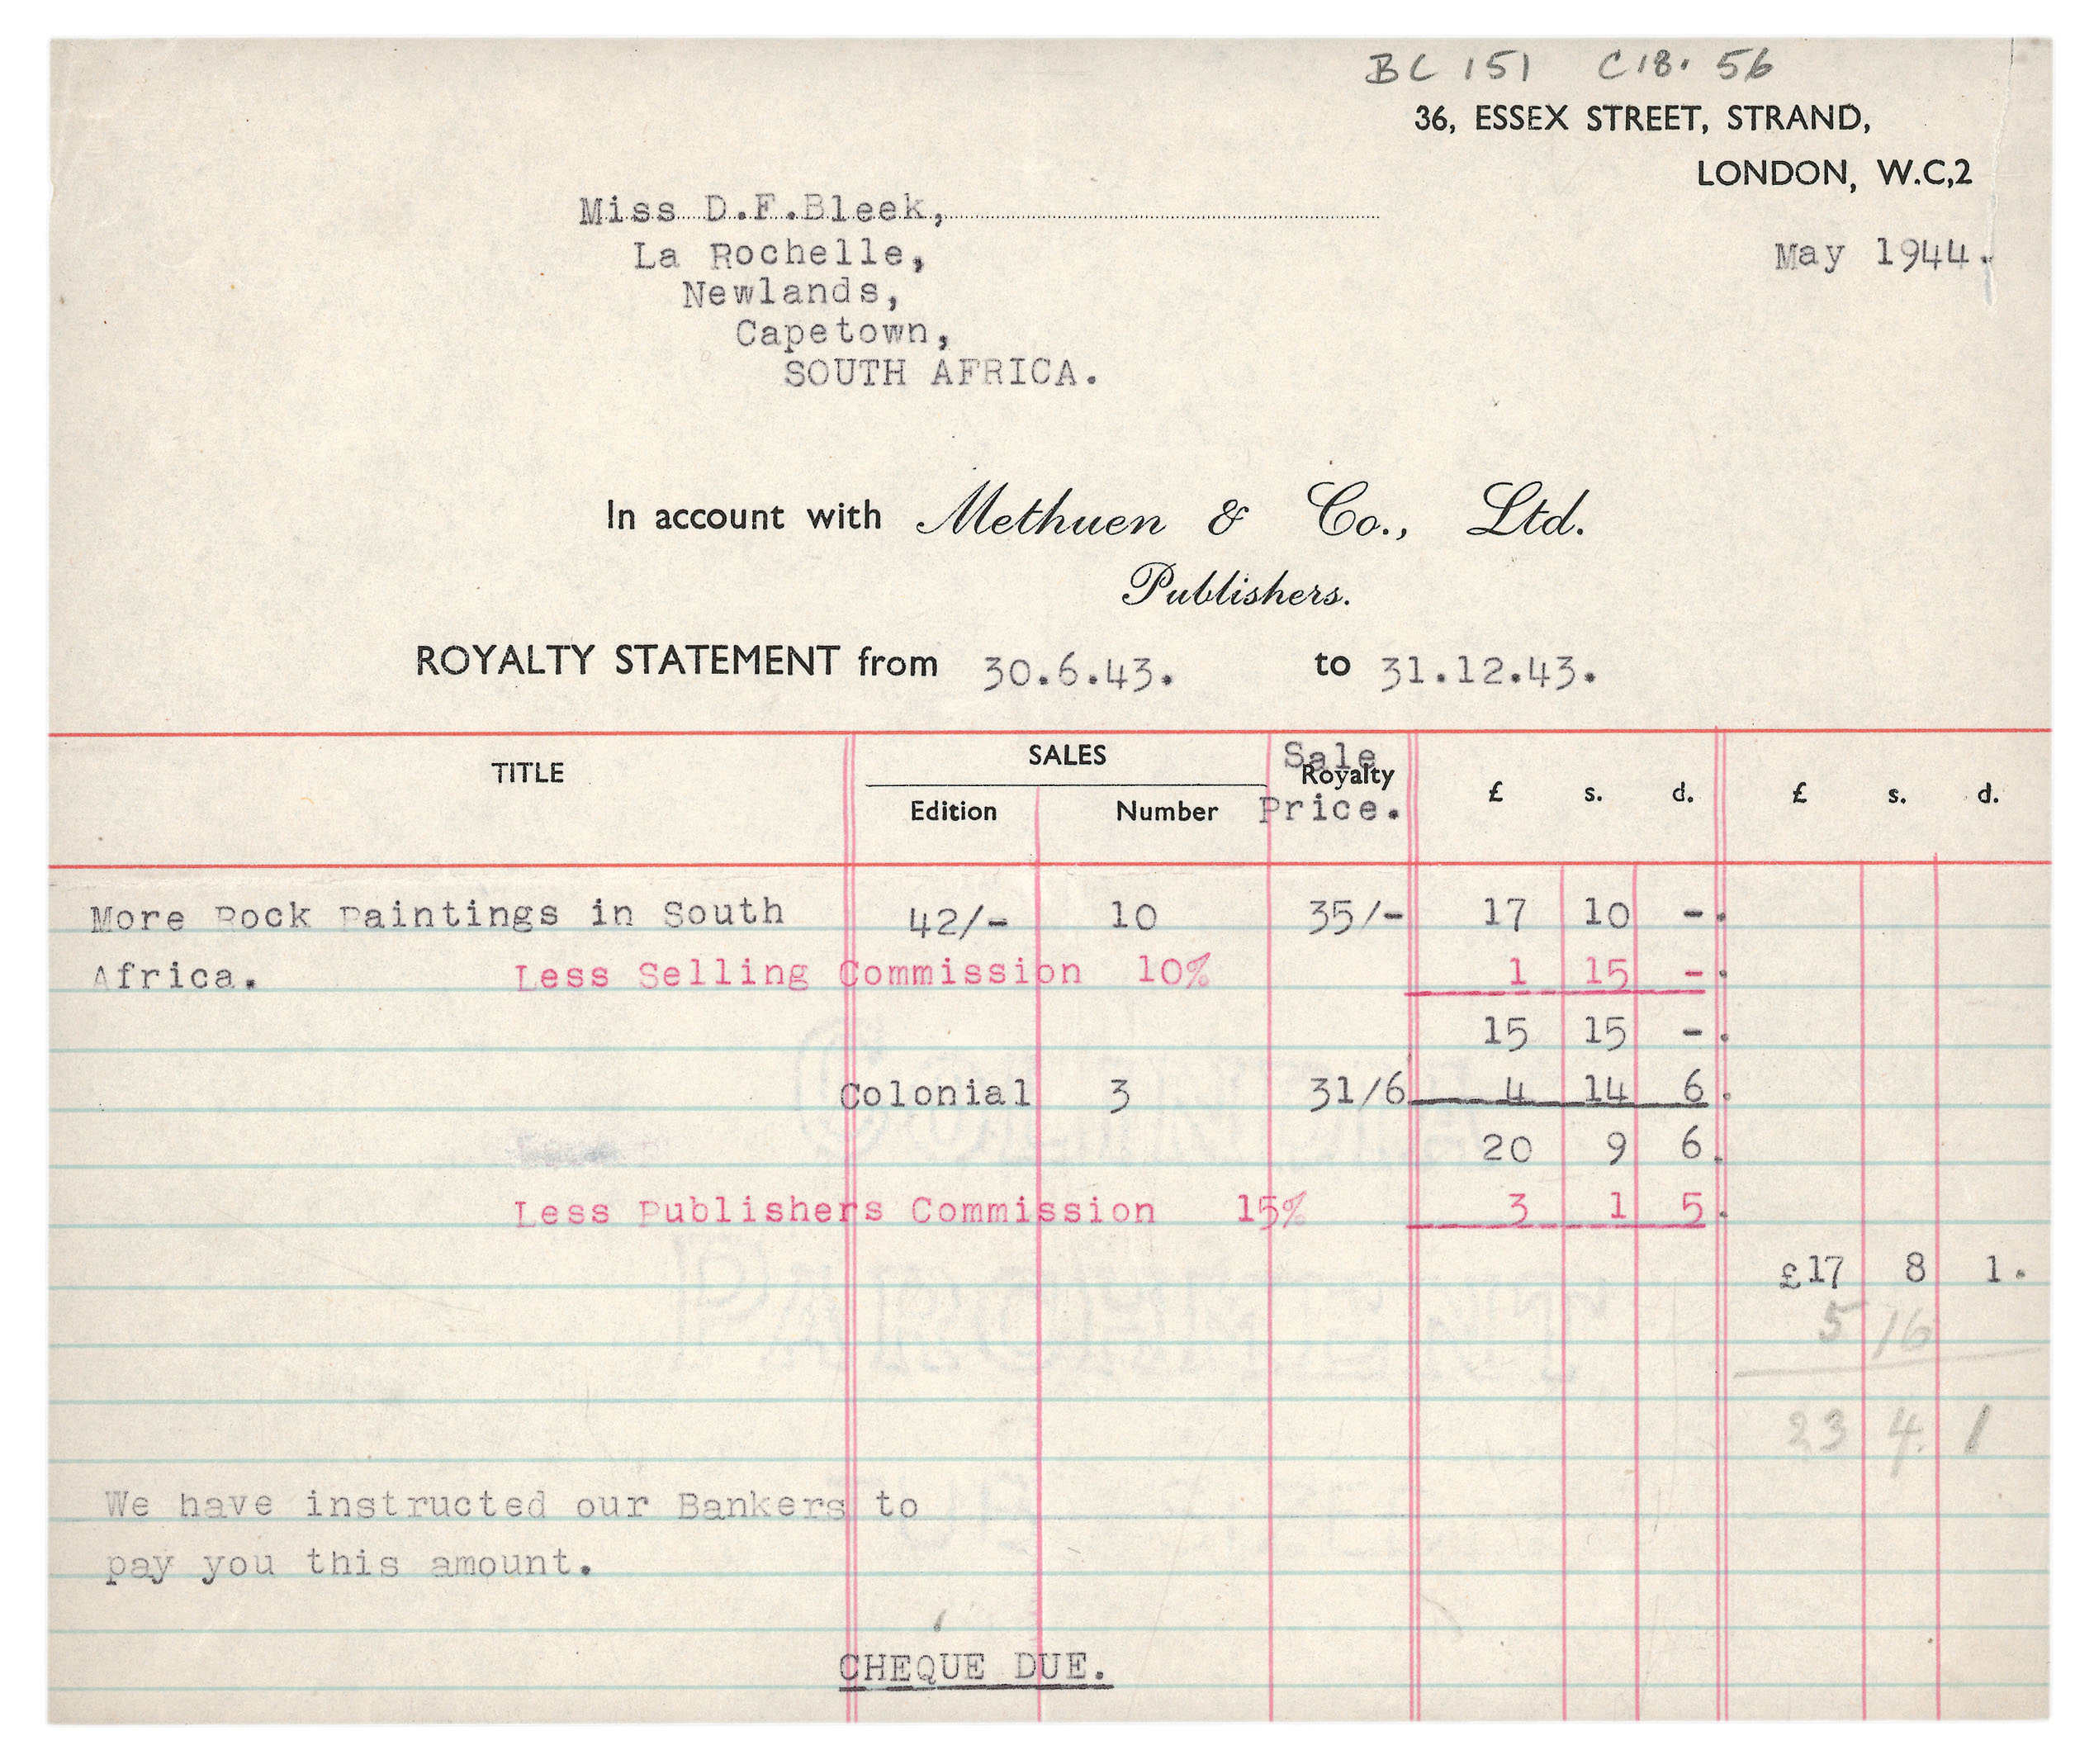 BC 151 C18. 56
36, ESSEX STREET, STRAND,
LONDON, W.C,2
Miss D.F.Bleek,
La Rochelle,
May 1944.
Newlands,
Capetown,
SOUTH AFRICA.
In account with Methuen & Co., Ltd.
Publishers.
ROYALTY STATEMENT from 30.6.43. to 31.12.43.
TITLE SALES Sale Royalty £ s. d. £ s. d.
Edition Number Price.
More Rock Paintings in South 42/- 10 35/- 17 10 -.
Africa. Less Selling Commission 10% 1 15 -.
15 15 -.
Colonial 3 31/6 4 14 6.
20 9 6.
Less Publishers Commission 15% 3 1 5.
£17 8 1.
5 16
23 4 1
We have instructed our Bankers to
pay you this amount.
CHEQUE DUE.